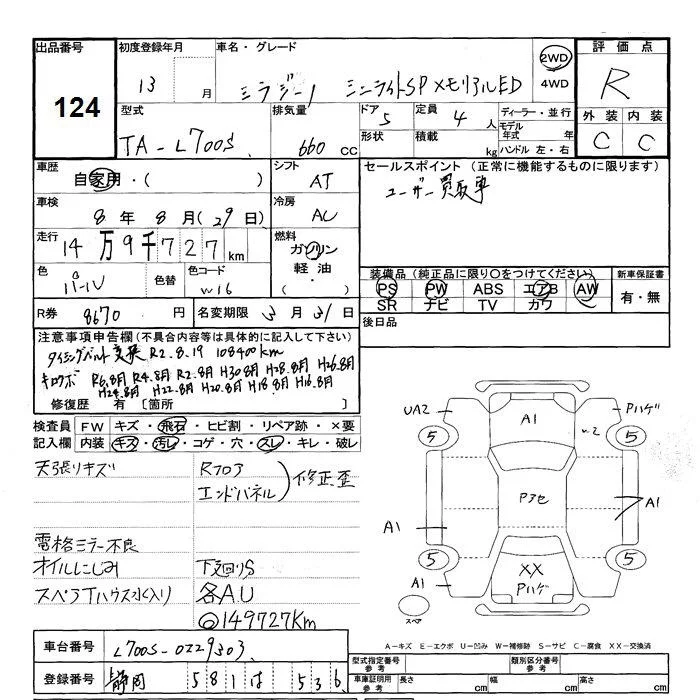 出品番号 初度登録年月 車名・グレード 2WD 評価点
124 13 月 ミラジーノ ミニライトSP メモリアルED 4WD R
型式 排気量 ドア 5 定員 4 人 ディーラー・並行 外装 内装
TA-L700S 660 cc 形状 積載 kg モデル年式 年 C C
ハンドル 左・右
車歴 シフト セールスポイント (正常に機能するものに限ります)
自家用・( ) AT ユーザー買取車
車検 冷房
8 年 8 月 (29 日) AC
走行 燃料
14 万 9 千 7 2 7 km ガソリン
色 色替 色コード 軽油 装備品 (純正品に限り○をつけてください) 新車保証書
パール W16 ・ PS PW ABS エアB AW 有・無
R券 8670 円 名変期限 3 月 31 日 SR ナビ TV カワ
注意事項申告欄 (不具合内容等は具体的に記入して下さい) 後日品
タイミングベルト交換 R2.8.19 108400km
キロクボ R6.8月 R4.8月 R2.8月 H30.8月 H28.8月 H26.8月
H24.8月 H22.8月 H20.8月 H18.8月 H16.8月
修復歴 有 [箇所
検査員 FW キズ・飛石・ヒビ割・リペア跡・×要
記入欄 内装 キズ・汚れ・コゲ・穴・スレ・キレ・破レ
天張りキズ Rフロア
エンドパネル 修正歪
電格ミラー不良
オイルにじみ 下廻りS
スペアTハウス水入り 各A.U
◎149727Km
UA2 A1 Pハゲ
5 w2 5
Pアセ
A1 A1
5 XX 5
A1 Pハゲ
スペア
A-キズ E-エクボ U-凹み W-補修跡 S-サビ C-腐食 XX-交換済
車台番号 L700S-0229303 型式指定番号 参考 類別区分番号 参考
登録番号 静岡 581 は 536 車庫証明用 参考 長さ cm 幅 cm 高さ cm